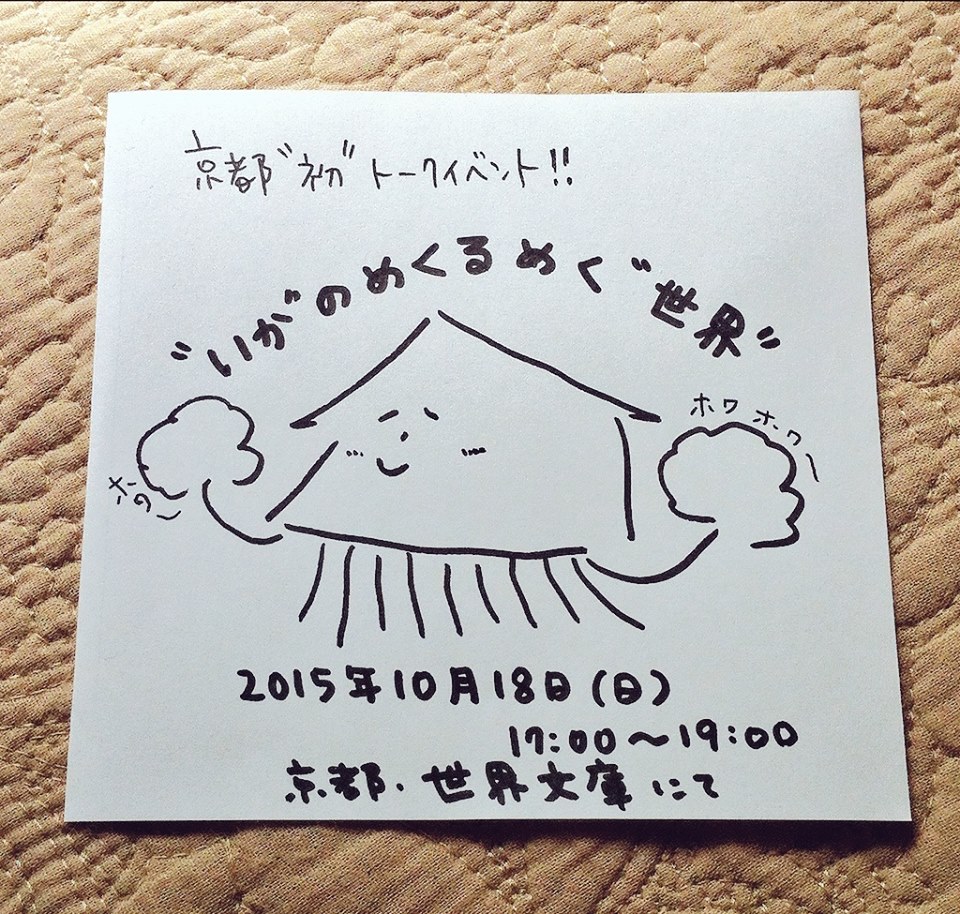 京都"初"トークイベント!!
"いがのめくるめく"世界"
ホワホワ〜
ホワ〜
2015年10月18日(日)
17:00〜19:00
京都・世界文庫にて